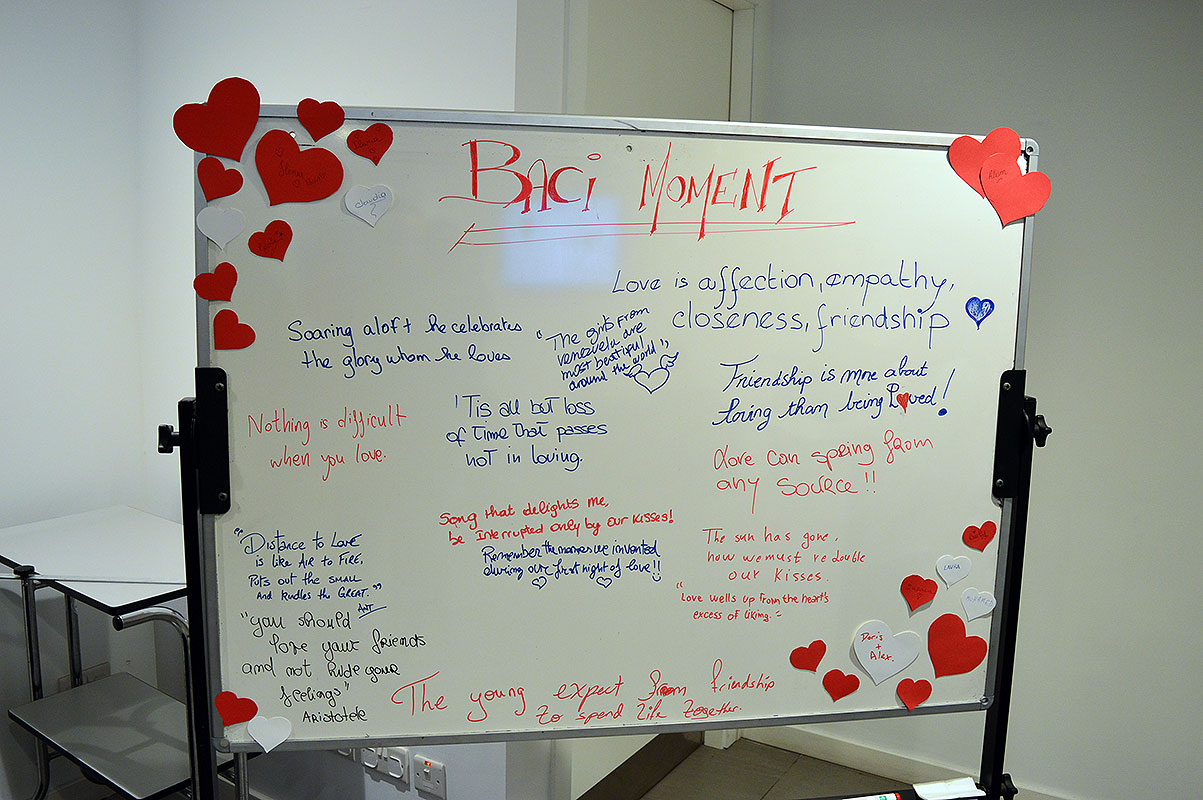 BACI MOMENT
Claudia
Love is affection, empathy,
closeness, friendship
Soaring aloft he celebrates
the glory whom he loves
"The girls from
venezuela are
most beautiful
around the world"
Friendship is more about
loving than being Loved!
Nothing is difficult
when you love.
'Tis all but loss
of time that passes
not in loving.
Love can spring from
any source!!
Song that delights me,
be interrupted only by our kisses!
Remember the names we invented
during our first night of love!!
"Distance to Love
is like Air to Fire,
Puts out the small
And kindles the Great."
ANT
The sun has gone,
now we must redouble
our kisses.
"Love wells up from the hearts
excess of liking."
"you should
love your friends
and not hide your
feelings"
Aristotele
The young expect from friendship
to spend life together.
LAURA
Doris
+
Alex.